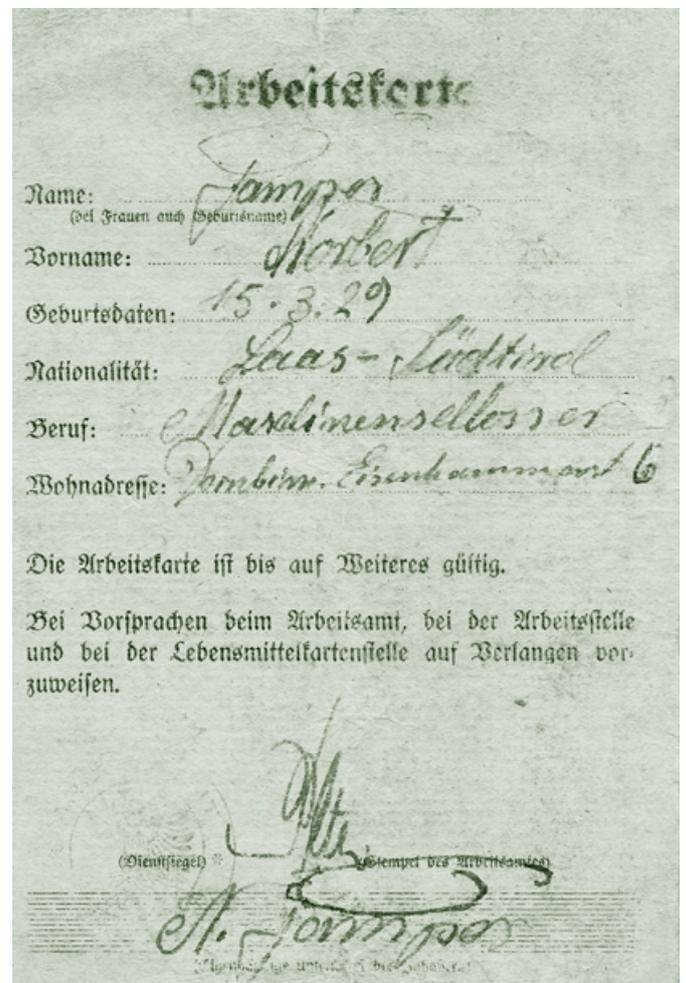 Arbeitskarte
Name: Tamper
(bei Frauen auch Geburtsname)
Vorname: Norbert
Geburtsdaten: 15.3.29
Nationalität: Laas - Südtirol
Beruf: Maschinenschlosser
Wohnadresse: Dornbirn. 6
Die Arbeitskarte ist bis auf Weiteres gültig.
Bei Vorsprachen beim Arbeitsamt, bei der Arbeitsstelle
und bei der Lebensmittelkartenstelle auf Verlangen vor-
zuweisen.
(Dienstsiegel) (Stempel des Arbeitsamtes)
N. Tamper